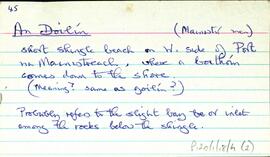 45
An Dóilín (Mainistir men)
short shingle beach on W. side of Port
na Mainistreach, where a bóithrín
comes down to the shore.
(Meaning? same as dóilín?)
Probably refers to the slight bay or inlet
among the rocks below the shingle.
P120/1/8/4 (2)